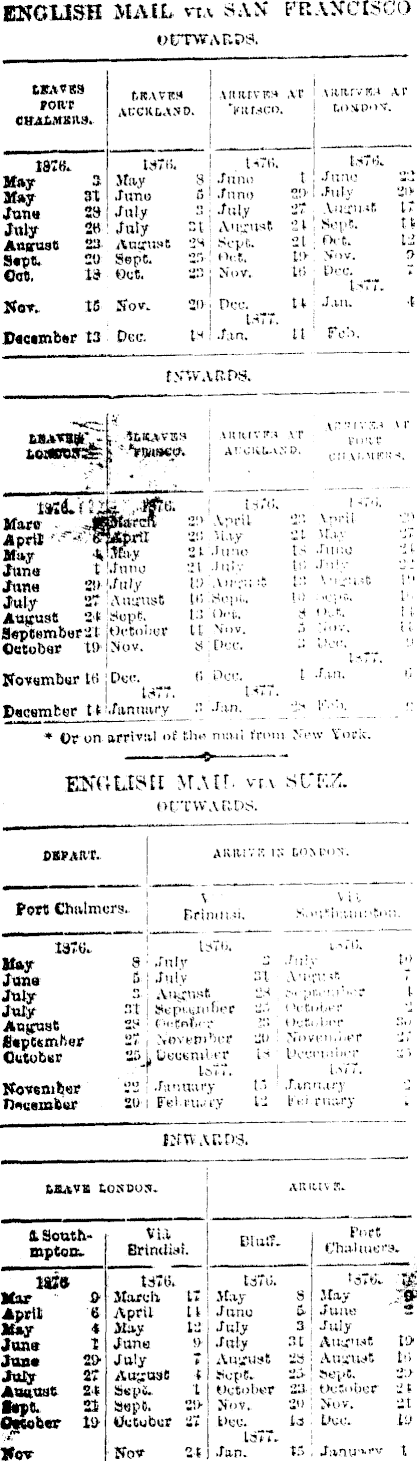 ENGLISH MAIL VIA SAN FRANCISCO
OUTWARDS.
LEAVES PORT CHALMERS. LEAVES AUCKLAND. ARRIVES AT 'FRISCO. ARRIVES AT LONDON.
1876. 1876. 1876. 1876.
May 3 May 8 June 1 June 22
May 31 June 5 June 29 July 20
June 28 July 3 July 27 August 17
July 26 July 31 August 24 Sept. 14
August 23 August 28 Sept. 21 Oct. 12
Sept. 20 Sept. 25 Oct. 19 Nov. 9
Oct. 18 Oct. 23 Nov. 16 Dec. 7
1877.
Nov. 15 Nov. 20 Dec. 14 Jan. 4
1877.
December 13 Dec. 18 Jan. 11 Feb.
INWARDS.
LEAVES LONDON. *LEAVES 'FRISCO. ARRIVES AT AUCKLAND. ARRIVES AT PORT CHALMERS.
1876. 1876. 1876. 1876.
March 29 April 23 April 29
April 6 April 26 May 21 May 27
May 4 May 24 June 18 June 24
June 1 June 21 July 16 July 22
June 29 July 19 August 13 August 19
July 27 August 16 Sept. 10 Sept. 16
August 24 Sept. 13 Oct. 8 Oct. 14
September 21 October 11 Nov. 5 Nov. 11
October 19 Nov. 8 Dec. 3 Dec. 9
1877.
November 16 Dec. 6 Dec. 1 Jan. 6
1877. 1877.
December 14 January 3 Jan. 28 Feb.
* Or on arrival of the mail from New York.
ENGLISH MAIL VIA SUEZ.
OUTWARDS.
DEPART. ARRIVE IN LONDON.
Port Chalmers. Brindisi. Via Southampton.
1876. 1876. 1876.
May 8 July 3 July 10
June 5 July 31 August 7
July 3 August 28 September 4
July 31 September 25 October 2
August 28 October 23 October 30
September 27 November 20 November 27
October 25 December 18 December 25
1877. 1877.
November 22 January 15 January 2
December 20 February 12 February
INWARDS.
LEAVE LONDON. ARRIVE.
Southmpton. Via Brindisi. Bluff. Port Chalmers.
1876 1876. 1876. 1876.
Mar 9 March 17 May 8 May 9
April 6 April 14 June 5 June
May 4 May 12 July 3 July
June 1 June 9 July 31 August 19
June 29 July 7 August 28 August 16
July 27 August 4 Sept. 25 Sept. 29
August 24 Sept. 1 October 23 October 24
Sept. 21 Sept. 29 Nov. 20 Nov. 21
October 19 October 27 Dec. 18 Dec. 19
1877.
Nov Nov 24 Jan. 15 January 1